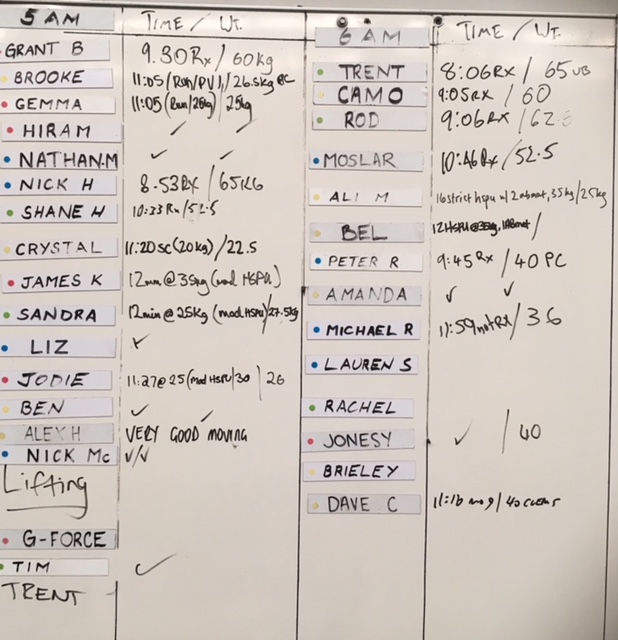 5 AM TIME / WT.
GRANT B 9.30Rx / 60kg
BROOKE 11:05 (Run/PV) / 26.5kg PC
GEMMA 11:05 (Run/20kg) / 25kg
HIRAM ✓ ✓
NATHAN.M ✓ ✓
NICK H 8.53Rx / 65KG
SHANE H 10:33 Rx / 52.5
CRYSTAL 11:20 SC (20kg) / 22.5
JAMES K 12min @ 35kg (mod HSPU)
SANDRA 12min @ 25kg (mod HSPU) / 27.5kg
LIZ ✓
JODIE 11:27 @ 25 (mod HSPU / 30) 26
BEN ✓ ✓
ALEX H VERY GOOD MOVING
NICK Mc ✓/✓
Lifting
G-FORCE
TIM ✓
TRENT
6 AM TIME / WT.
TRENT 8:06RX / 65 UB
CAMO 9:05RX / 60
ROD 9:06RX / 62.5
MOSLAR 10:46Rx / 52.5
ALI M 16 strict hspu w/ 2 abmat, 35kg / 25kg
BEL 12 HSPU @ 35kg, 1 Abmat /
PETER R 9:45 Rx / 40 PC
AMANDA ✓ ✓
MICHAEL R 11:59 not Rx / 36
LAUREN S
RACHEL
JONESY ✓ / 40
BRIELEY
DAVE C 11:16 / 40